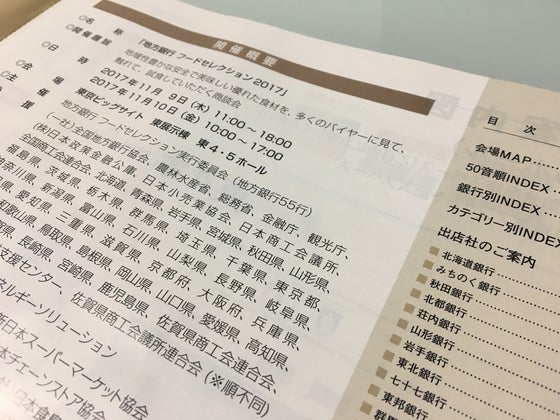 開催概要
○名　称　「地方銀行 フードセレクション2017」
○開催趣旨　地域性豊かな安全で美味しい優れた食材を、多くのバイヤーに見て、
触れて、試食していただく商談会
○日　時　2017年11月 9日(木) 11:00～18:00
2017年11月10日(金) 10:00～17:00
○会　場　東京ビッグサイト　東展示棟　東4・5ホール
○主　催　地方銀行 フードセレクション実行委員会（地方銀行55行）
援　(一社)全国地方銀行協会、農林水産省、総務省、金融庁、観光庁、
(株)日本政策金融公庫、日本小売業協会、日本商工会議所、
全国商工会連合会、北海道、青森県、岩手県、宮城県、秋田県、山形県、
福島県、茨城県、栃木県、群馬県、埼玉県、千葉県、東京都、
神奈川県、新潟県、富山県、石川県、山梨県、長野県、岐阜県、
県、愛知県、三重県、滋賀県、京都府、大阪府、兵庫県、
和歌山県、鳥取県、島根県、岡山県、山口県、愛媛県、高知県、
県、長崎県、宮崎県、鹿児島県、佐賀県商工会連合会、
支援センター、佐賀県商工会議所連合会（※順不同）
ネルギーソリューション
新日本スーパーマーケット協会
本チェーンストア協会
日本食
目　次
会場MAP
50音順INDEX
銀行別INDEX
カテゴリー別INDEX
出店社のご案内
北海道銀行
みちのく銀行
秋田銀行
北都銀行
荘内銀行
山形銀行
岩手銀行
東北銀行
七十七銀行
東邦銀行
群馬